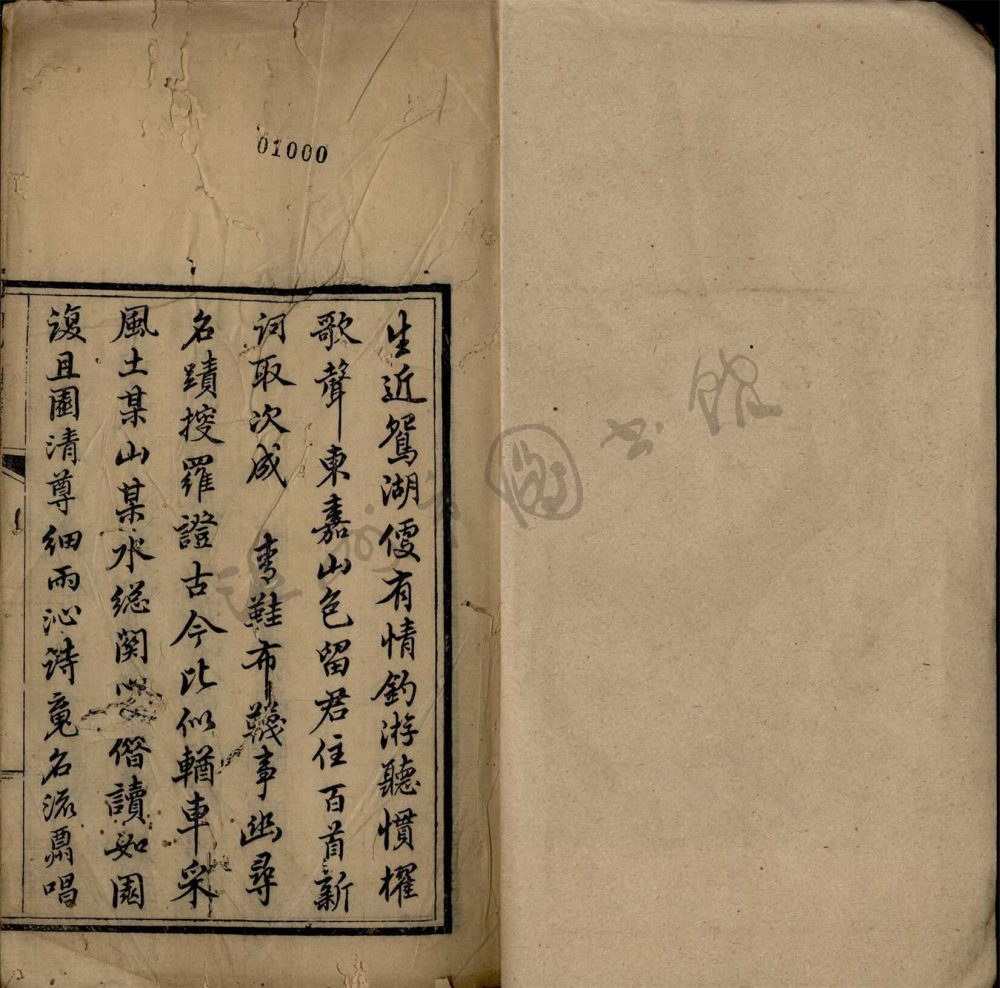 01000
生近鴛湖便有情釣游聽慣櫂
歌聲東嘉山色留君住百首新
詞取次成 青鞋布韈事幽尋
名蹟搜羅證古今比似輶車采
風土某山某水總関心 偕讀如園
復且園清尊細雨沁詩竟名流賡唱
圖書館